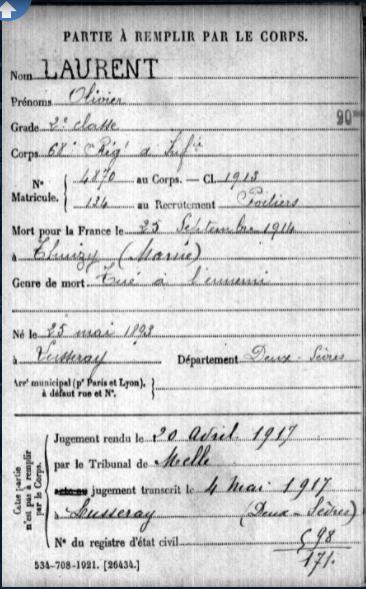 PARTIE À REMPLIR PAR LE CORPS.
Nom LAURENT
Prénoms Olivier
Grade 2e classe 90
Corps 68e Rég' d'Inf ie
N° Matricule. { 4870 au Corps. — Cl. 1913
134 au Recrutement Poitiers
Mort pour la France le 25 Septembre 1914
à Thuizy (Marne)
Genre de mort Tué à l'ennemi
Né le 25 mai 1893
à Lusseray Département Deux-Sèvres
Arrt municipal (pr Paris et Lyon), à défaut rue et N°. }
Cette partie n'est pas à remplir par le Corps.
Jugement rendu le 20 avril 1917
par le Tribunal de Melle
jugement transcrit le 4 Mai 1917
à Lusseray (Deux-Sèvres)
N° du registre d'état civil 598
171.
534-708-1921. [26434.]